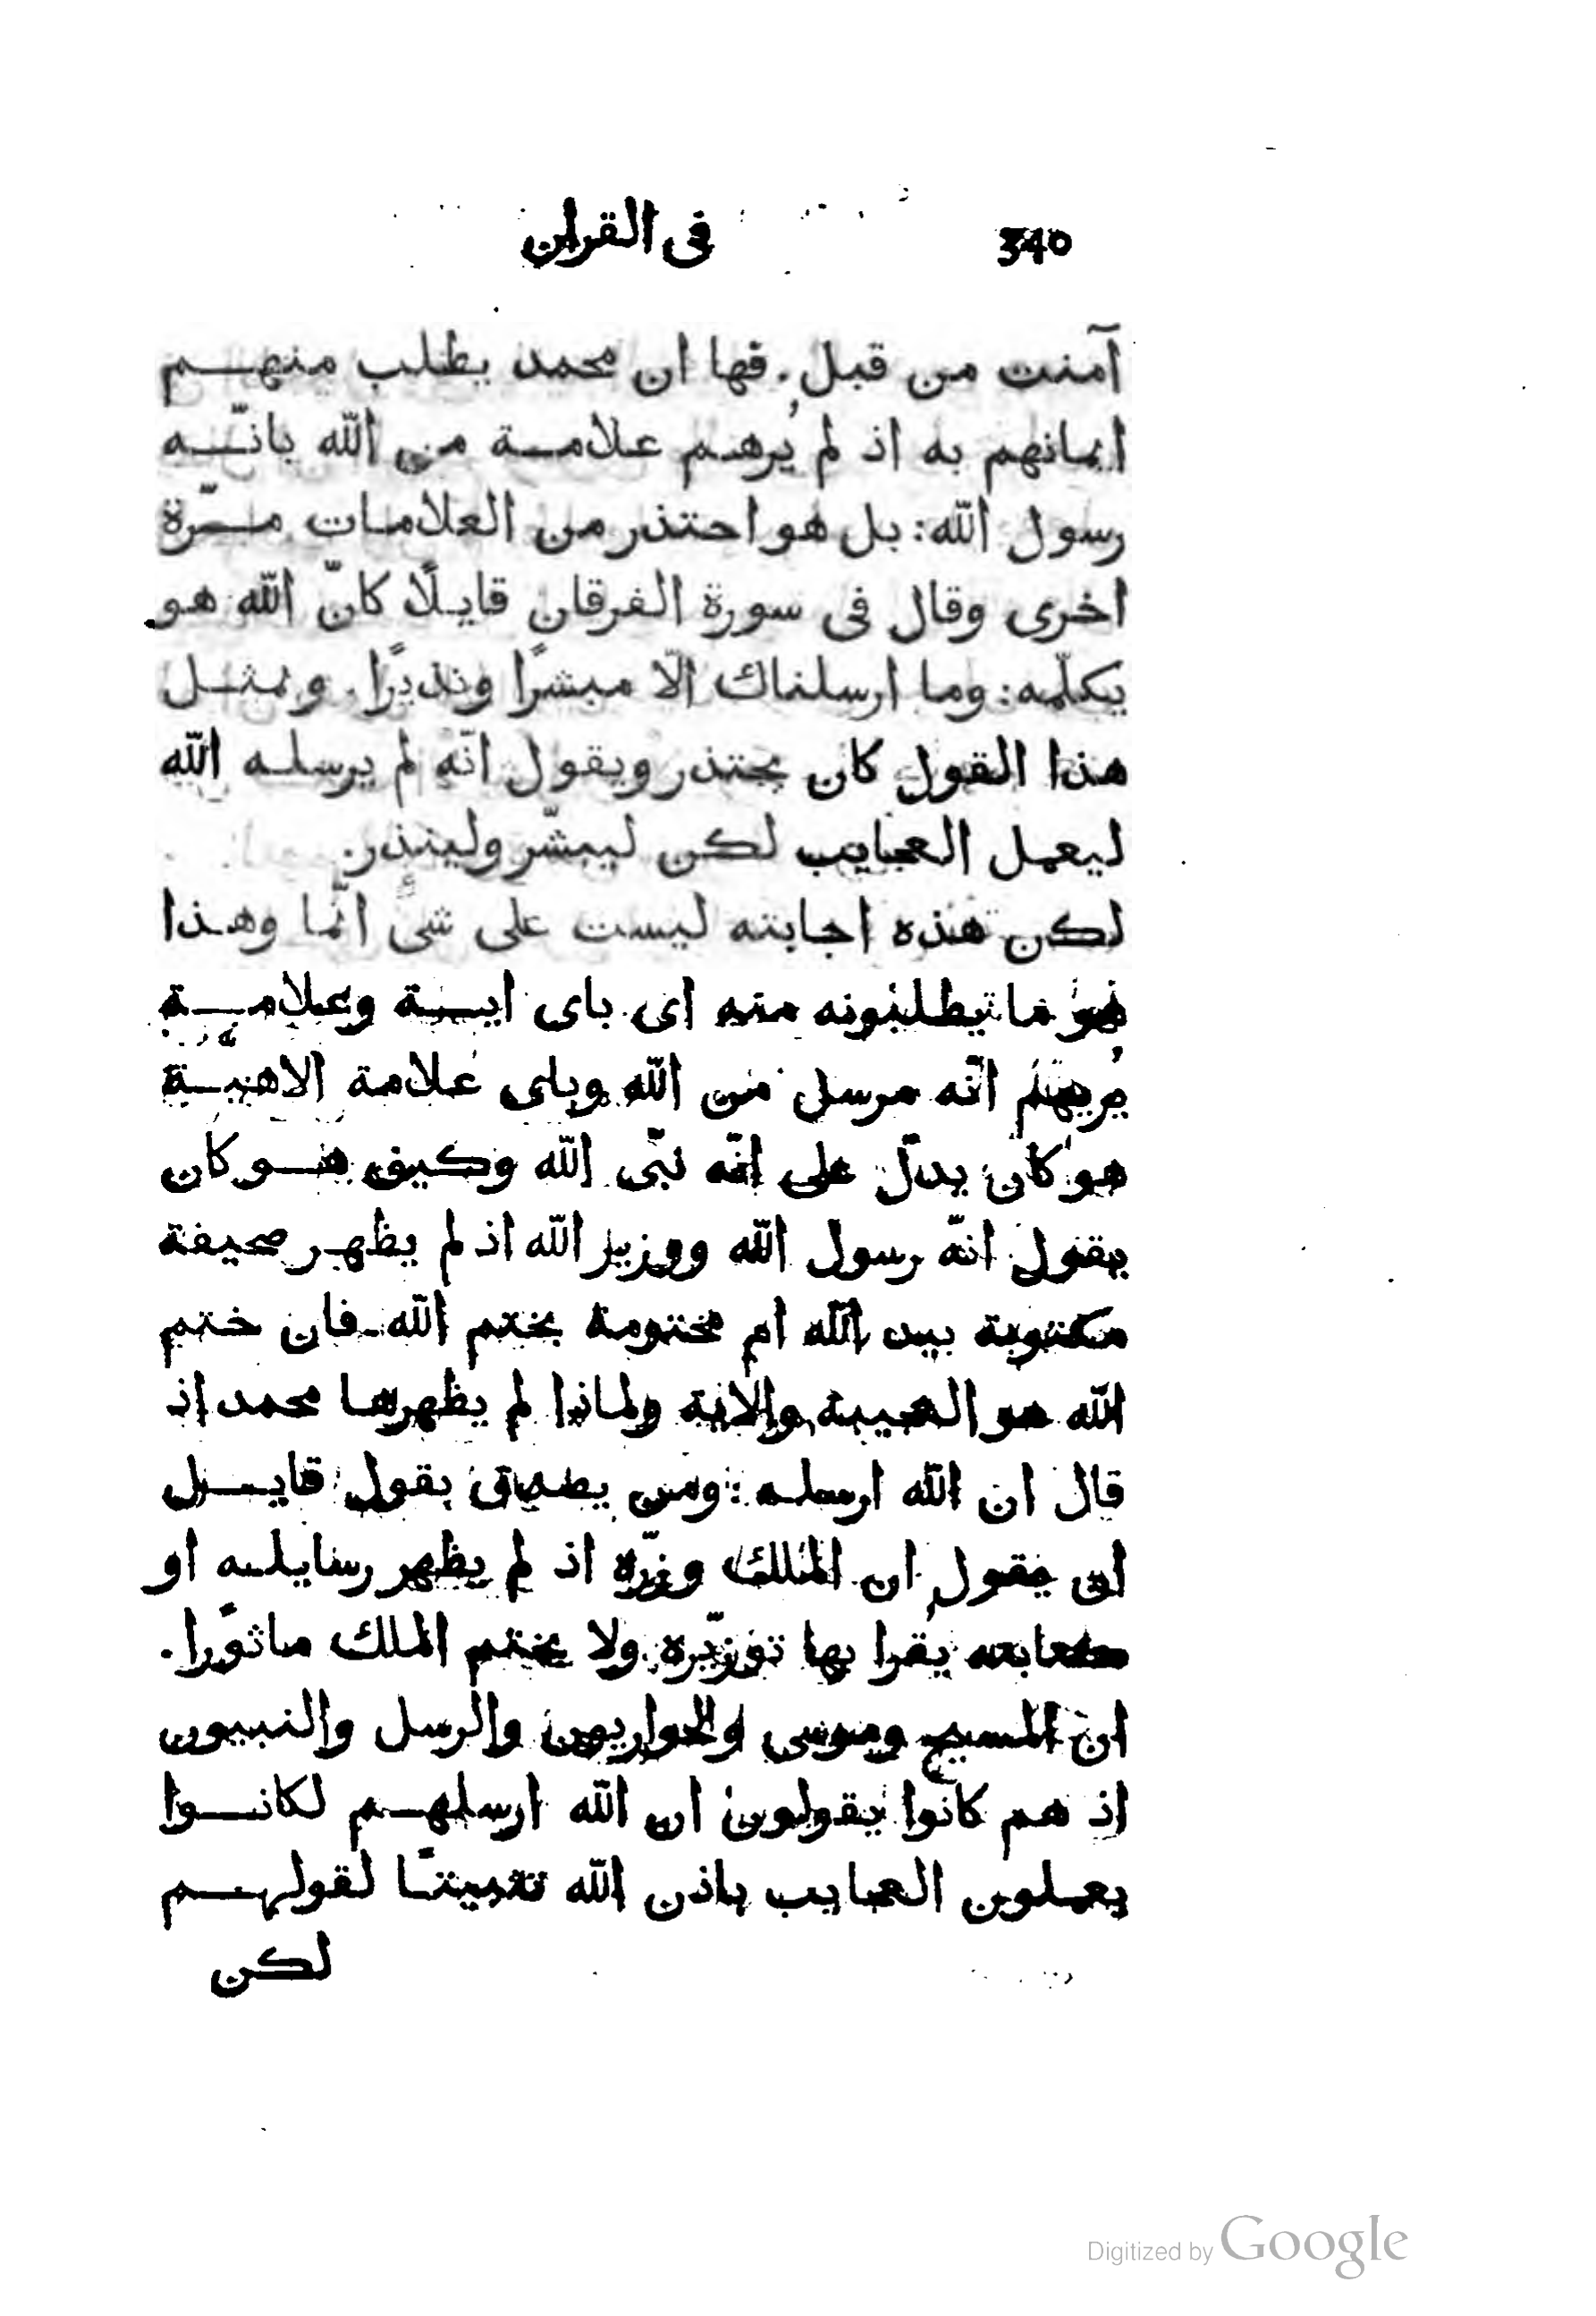 340 فى القران
آمنت من قبل. فها ان محمد يطلب منهم
ايمانهم به اذ لم يُرهم علامة من اللّه بانّه
رسول اللّه: بل هو احتذر من العلامات مرّة
اخرى وقال فى سورة الفرقان قايلًا كانّ اللّه هو
يكلّمه: وما ارسلناك الّا مبشرًا ونذيرًا. وبمثل
هذا القول كان يحتذر ويقول انّه لم يرسله اللّه
ليعمل العجايب لكن ليبشّر ولينذر.
لكن هذه اجابته ليست على شىء انّما وهذا
هو ما يطلبونه منه اى باى اية وعلامة
يُريهم انّه مرسل من اللّه وباى علامة الاهيّة
هو كان يدلّ على انّه نبّى اللّه وكيف هو كان
يقول انّه رسول اللّه ووزير اللّه اذ لم يظهر صحيفة
مكتوبة بيد اللّه ام مختومة بختم اللّه. فان ختم
اللّه هو العجيبة والاية ولماذا لم يظهرها محمد اذ
قال ان اللّه ارسله: ومن يصدق بقول قايل
ان يقول ان الملك وزّره اذ لم يظهر رسايله او
يُقرا بها توزيّره ولا بختم الملك ماثورًا.
ان المسيح وموسى والحواريون والرسل والنبيون
اذ هم كانوا يقولون ان اللّه ارسلهم لكانوا
يعملون العجايب باذن اللّه تثبيتًا لقولهم
لكن
Digitized by Google